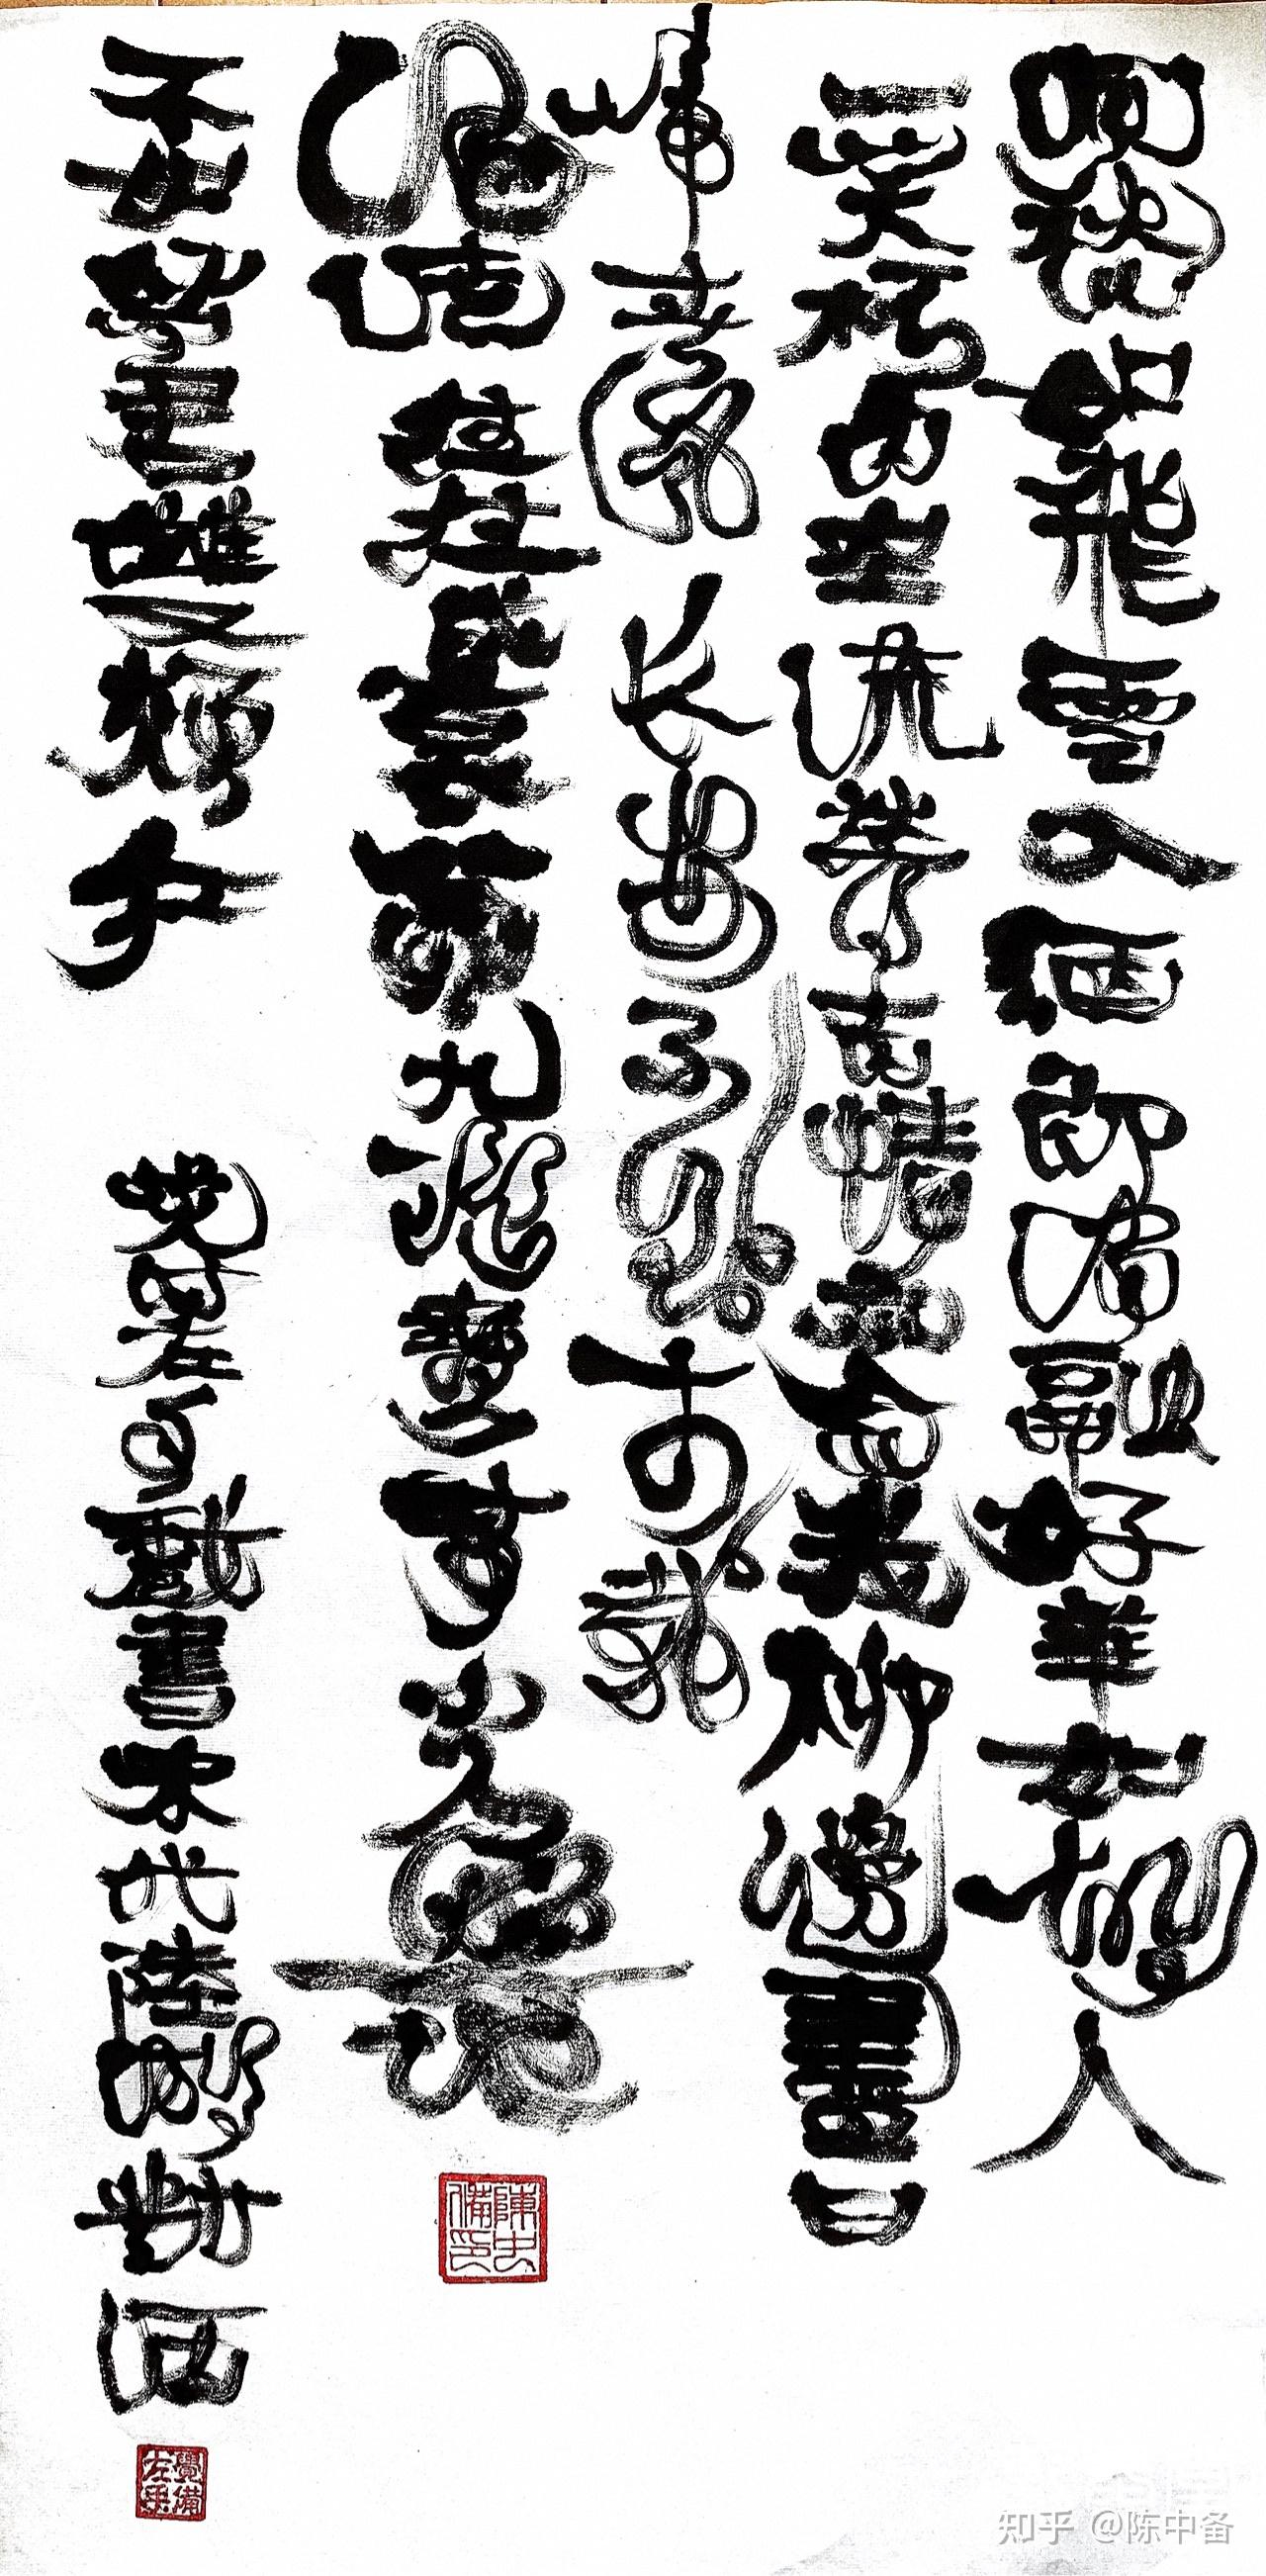 閒愁如飛雪入酒即消融好華如故人
一笑杯自空流鶯有情亦念我柳邊盡日
啼春風长安不到十四載
酒徒往往成衰翁九環寶帶光照地
不如留君雙頰紅
左手戲書宋代陸游對酒
陳中備印
知乎 @陈中备